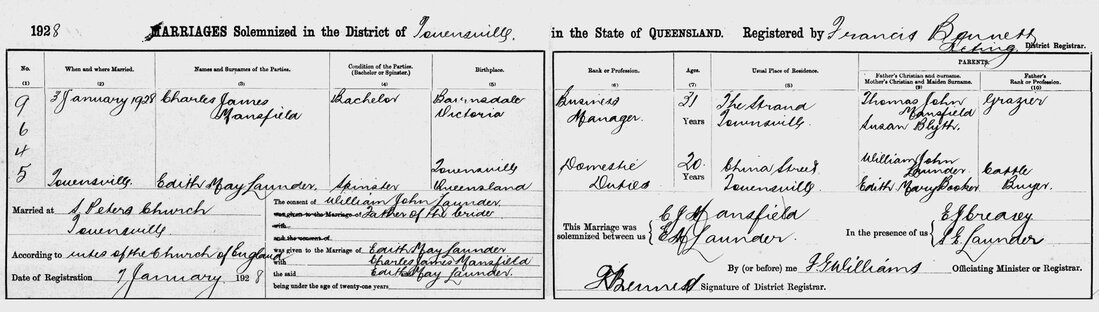 1928 MARRIAGES Solemnized in the District of Townsville. in the State of QUEENSLAND. Registered by Francis Bennett
Acting District Registrar.
PARENTS.
No. When and where Married. Names and Surnames of the Parties. Condition of the Parties. (Bachelor or Spinster.) Birthplace. Rank or Profession. Ages. Usual Place of Residence. Father's Christian and Surname. Mother's Christian and Maiden Surname. Father's Rank or Profession.
(1) (2) (3) (4) (5) (6) (7) (8) (9) (10)
9 3 January 1928 Charles James Bachelor Bairnsdale Business 31 The Strand Thomas John Grazier
Mansfield Victoria Manager. Years Townsville. Mansfield
6 Susan Blyth.
4 Townsville Domestic 20 China Street William John
Launder Cattle
5 Townsville. Edith May Launder. Spinster Queensland Duties Years Townsville Edith Mary Booker Buyer.
Married at St Peters Church
Townsville.
According to rites of the Church of England
Date of Registration 7 January 1928
The consent of William John Launder
was given to the Marriage of Father of the bride
with
and the consent of
was given to the Marriage of Edith May Launder
with Charles James Mansfield
the said Edith May Launder.
being under the age of twenty-one years.
This Marriage was
solemnized between us
C J Mansfield
E M Launder.
In the presence of us
E J Creasey
S E Launder
By (or before) me J G Williams Officiating Minister or Registrar.
F Bennett Signature of District Registrar.